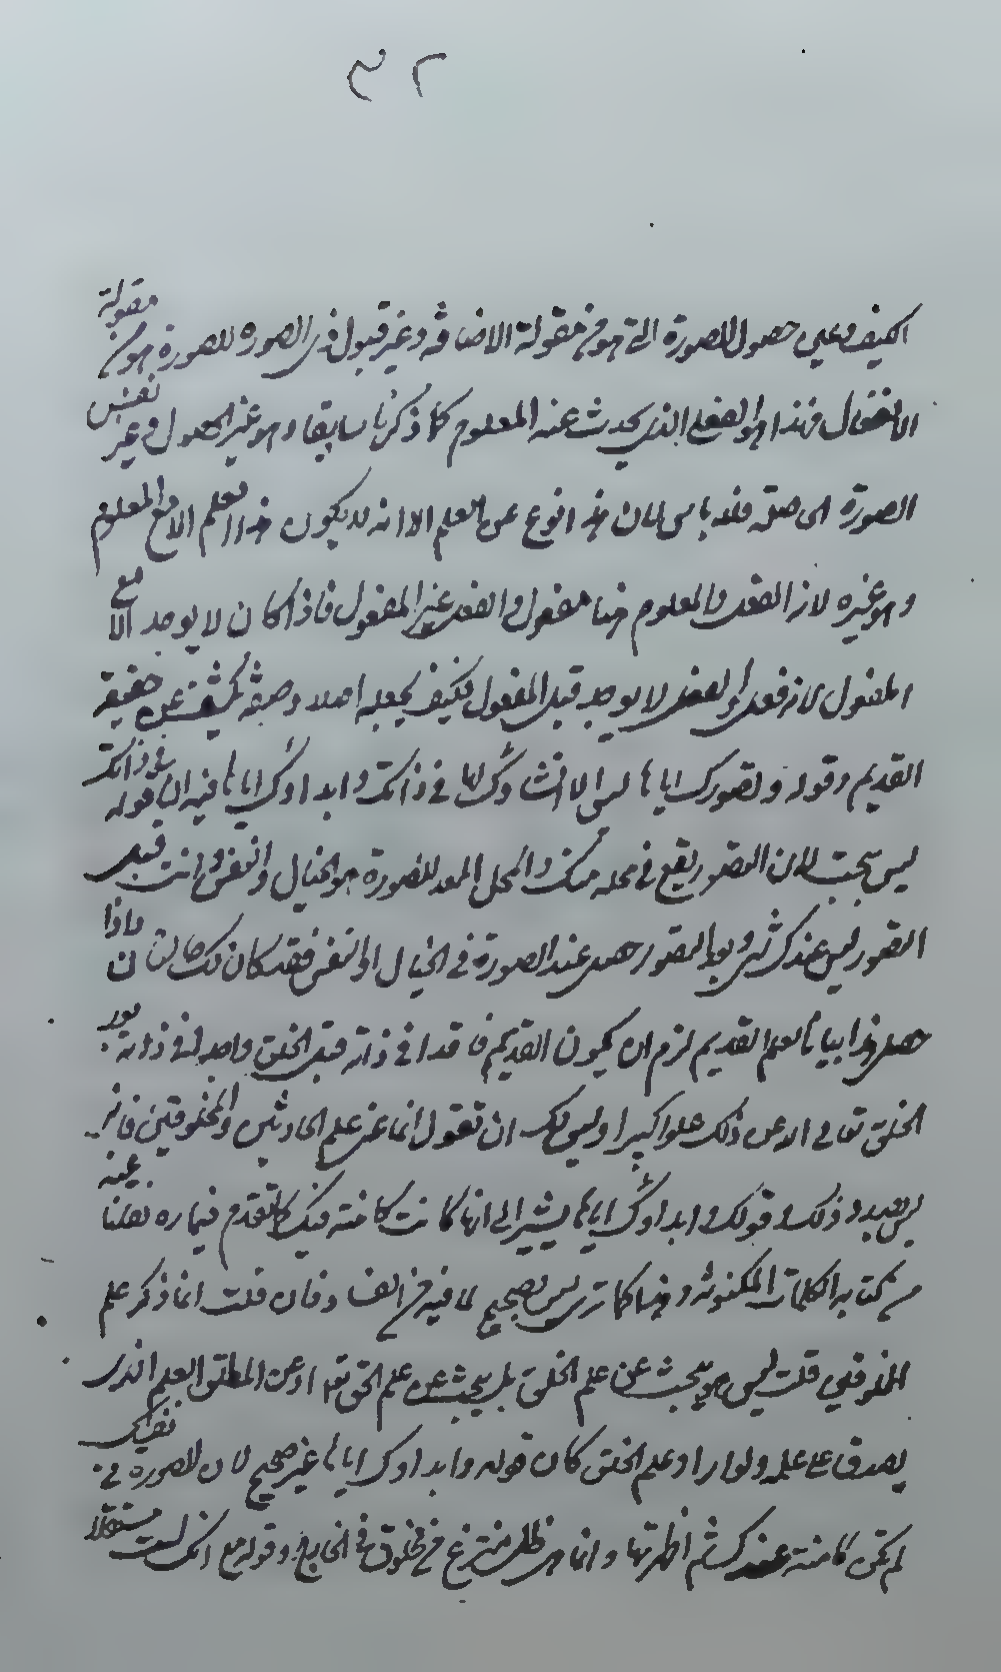 ٣٢
الكيف وعلى حصول الصورة التي هو من مقولة الاضافة وغير قبول ذي الصورة للصورة هو من مقولة
الانفعال فهذا هو الفعلي الذي يحدث عنه المعلوم كما ذكرنا سابقا وهو غير الحصول وغير نفس
الصورة فلا بأس لان هذا نوع من العلم الا انه لا يكون هذا العلم الا مع المعلوم
وهو غيره لان الفعل والمعلوم هنا مفعول والفعل غير المفعول فاذا كان لا يوجد الا مع
المفعول لانه فعل والفعل لا يوجد قبل المفعول فكيف يجعله اصلا وصفة يكشف عن حقيقة
القديم وقوله وتصورك اياها ليس الا انشاؤك لها في ذاتك وابداؤك اياها فيه ان قوله في ذاتك
ليس بجيد لان التصور يقع في محله منك والمحل المعد للصورة هو الخيال والنفس وانت قبل
التصور ليس عندك شيء وبعد التصور حصل عند الصورة في الخيال او النفس فقد كان لك حالتان فاذا
جعل هذا بيانا لعلم القديم لزم ان يكون القديم فاقدا في ذاته قبل الخلق واجدا في ذاته بعد
الخلق تعالى الله عن ذلك علوا كبيرا وليس لك ان تقول انما عنى علم الحادثين والمخلوقين فانه
ليس بصدد ذلك وقولك وابداؤك اياها يشير الى انها كانت كامنة فيك كما تقدم فيما نقلنا عنه
من كتابه الكلمات المكنونة وهذا كما ترى ليس بصحيح لما فيه من الفساد فان قلت انما ذكر علم
المخلوقين قلت ليس هو يبحث عن علم الخلق بل يبحث عن علم الحق تعالى او عن المطلق العلم الذي
يصدق على علمه ولو اراد علم الخلق كان قوله وابداؤك اياها غير صحيح لان الصورة في نفسك
لم تكن كامنة عندك ثم اظهرتها وانما هي ظل منتزع من مخلوق في الخارج وقوله مع انك لست مستقلا